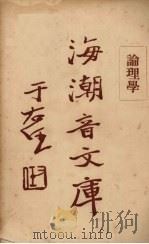 論理學
海潮音文庫
于右任